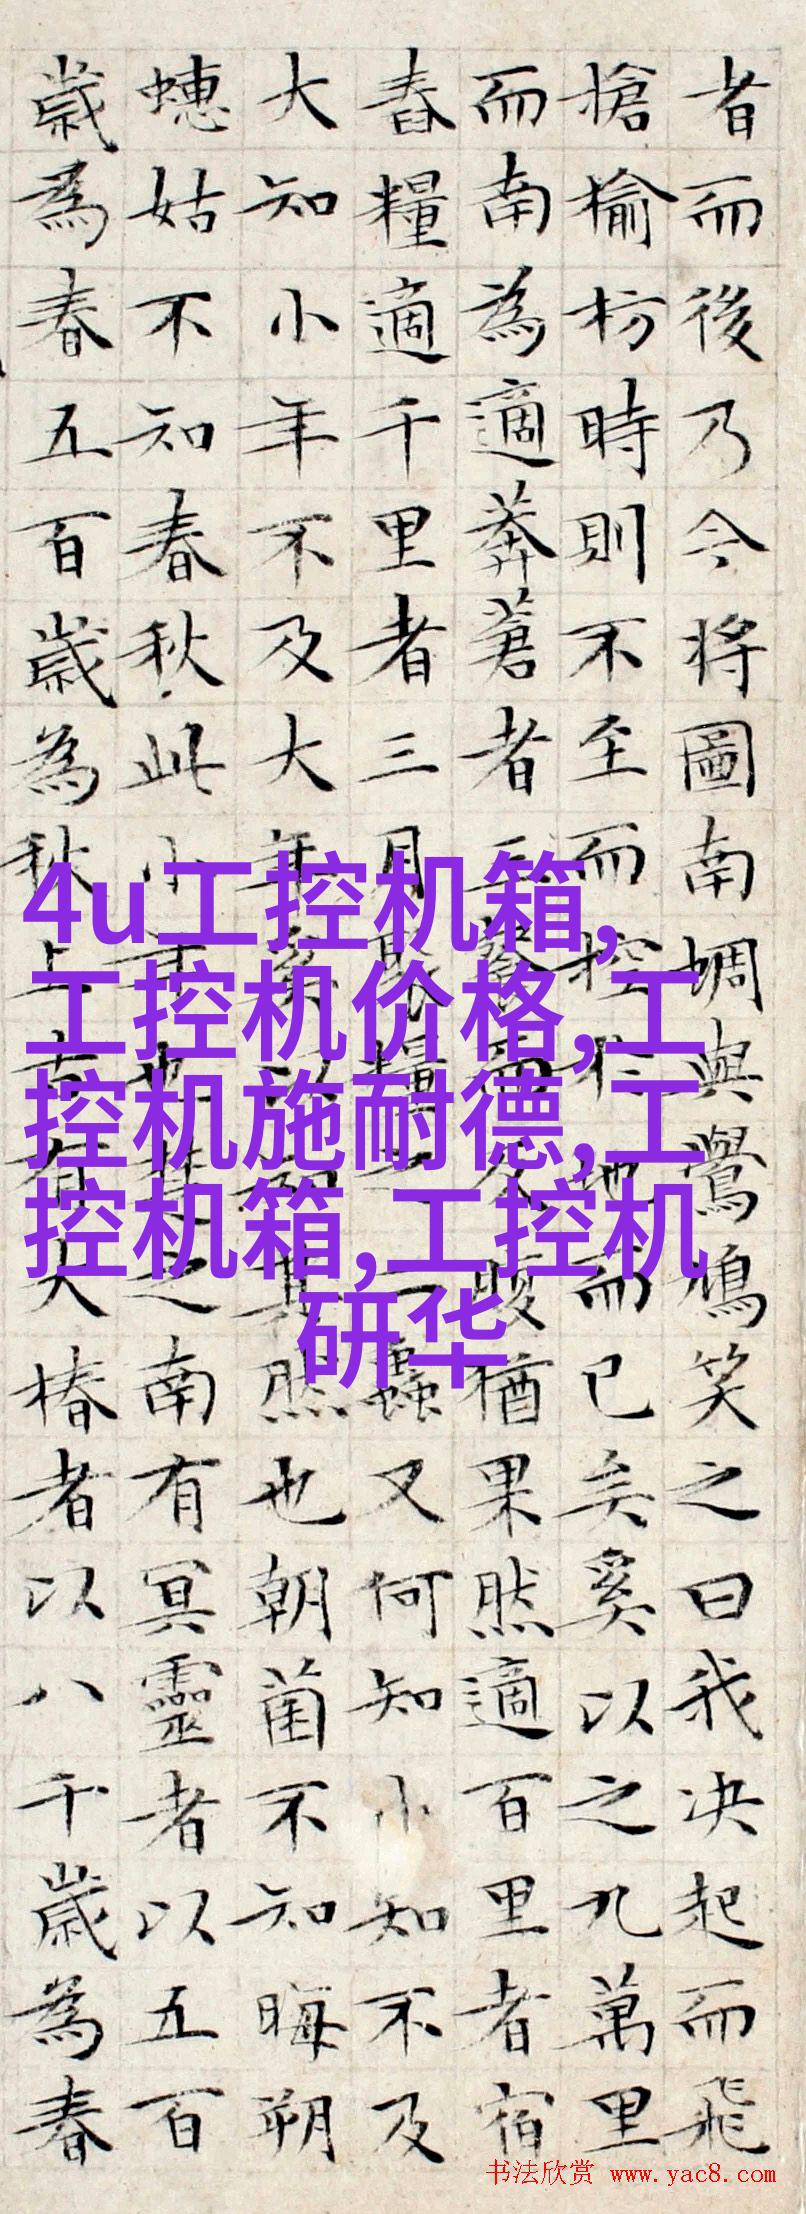 者而後乃今将圖南蜩與鷽鳩笑之曰我决起而飛
槍榆枋時則不至而控於地而已矣奚以之九萬里
而南為適莽蒼者三飡而反腹猶果然適百里者宿
舂糧適千里者三月聚糧之二蟲又何知小知不及
大知小年不及大年奚以知其然也朝菌不知晦朔
蟪姑不知春秋此小年也楚之南有冥靈者以五百
歲為春五百歲為秋上古有大椿者以八千歲為春
4u工控机箱,
工控机价格,工
控机施耐德,工
控机箱,工控机
研华
书法欣赏 www.yac8.com